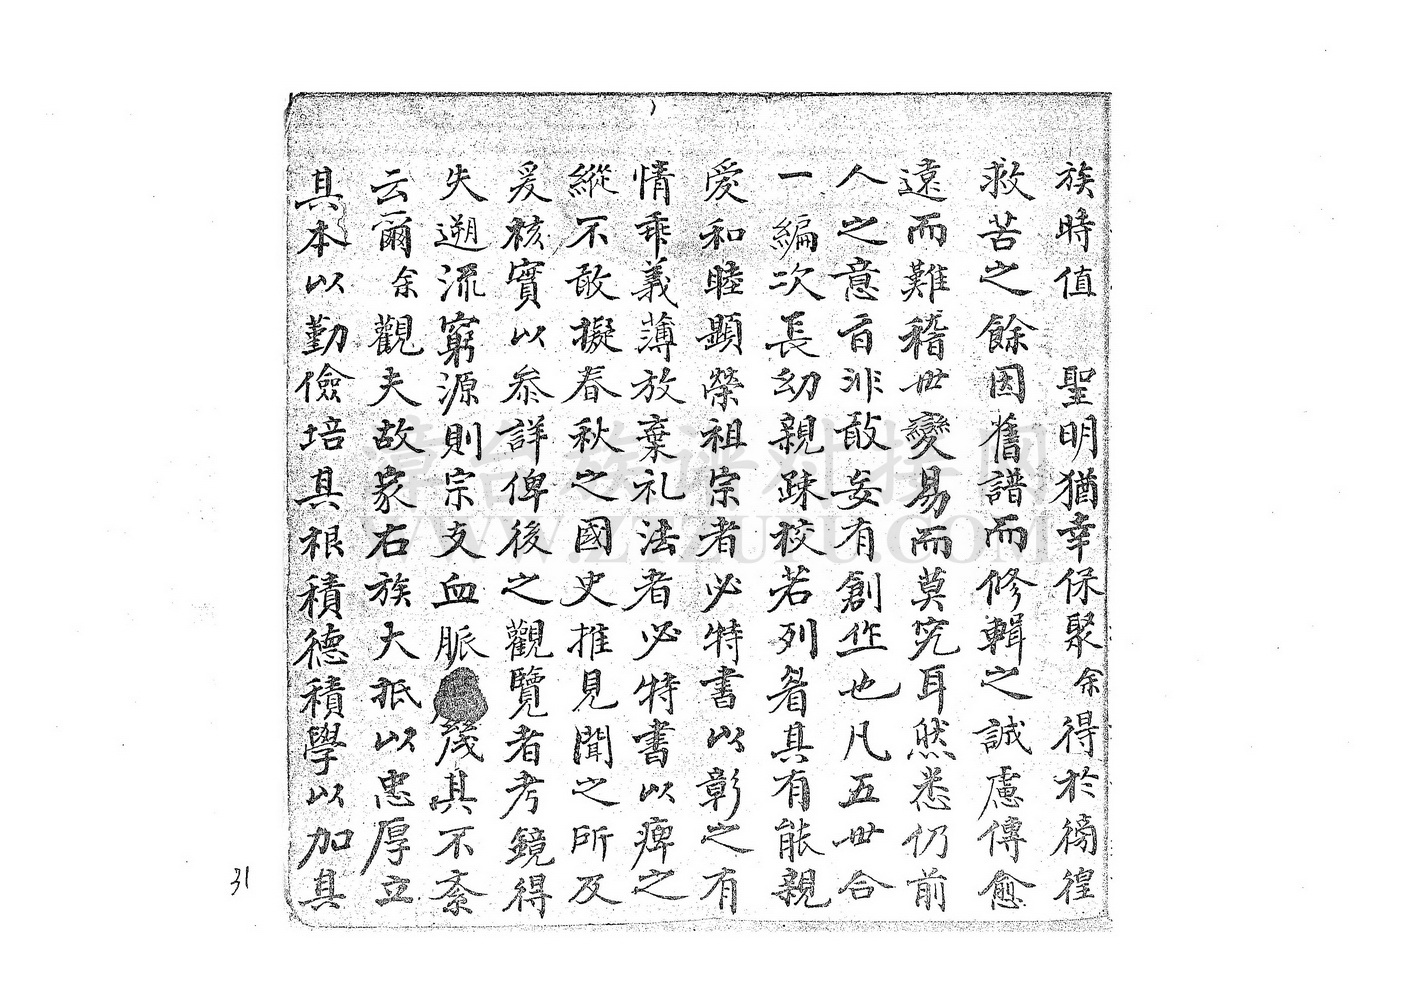 族時值　聖明猶幸保聚余得於徬徨
救苦之餘因舊譜而修輯之誠慮傳愈
遠而難稽世變易而莫究耳然悉仍前
人之意百非敢妄有創作也凡五世合
一編次長幼親疎校若列眉其有能親
愛和睦顯榮祖宗者必特書以彰之有
情乖義薄放棄礼法者必特書以瘅之
縱不敢擬春秋之國史推見聞之所及
爰核實以参詳俾後之觀覽者考鏡得
失遡流窮源則宗支血脈幾其不紊
云爾余觀夫故家右族大抵以忠厚立
其本以勤儉培其根積德積學以加其
31
漳台族谱对接网
WWW.ZTZUPU.COM